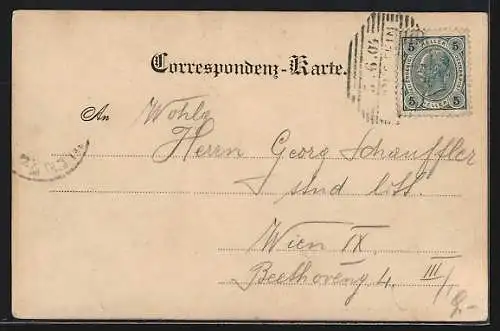 Correspondenz-Karte.
5 5
HELLER
5 5
HELLER
An Wohlg
Herrn Georg Schauffler
stud
Wien IX.
Beethoveng 4. III/